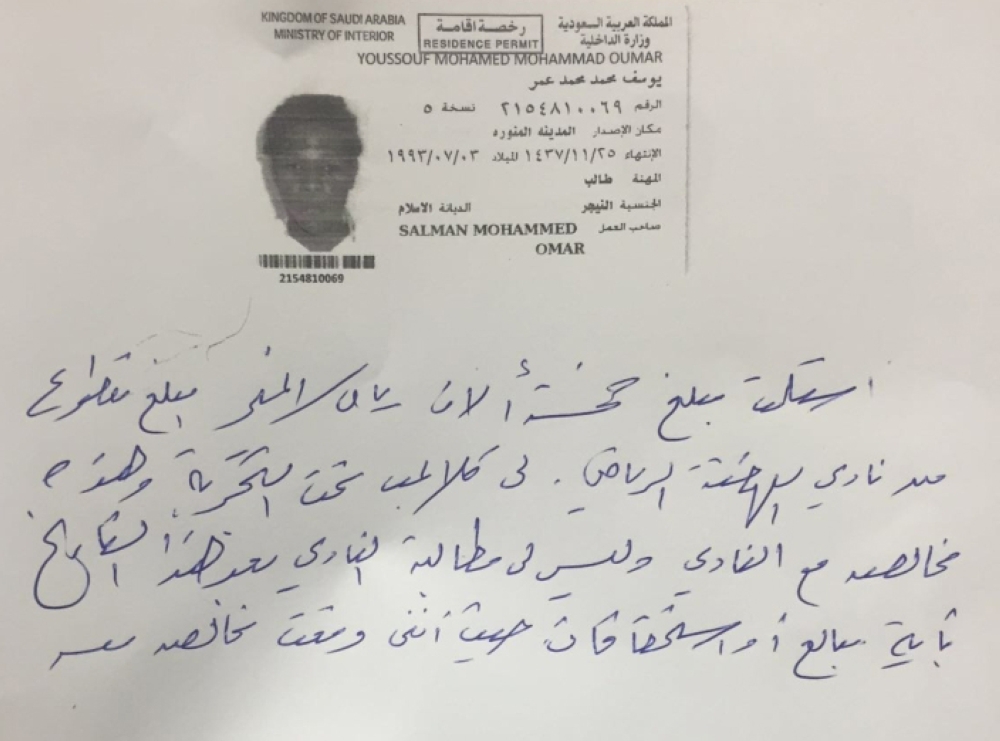 KINGDOM OF SAUDI ARABIA
MINISTRY OF INTERIOR
رخصة اقامة
RESIDENCE PERMIT
المملكة العربية السعودية
وزارة الداخلية
YOUSSOUF MOHAMED MOHAMMAD OUMAR
يوسف محمد محمد عمر
الرقم ٢١٥٤٨١٠٠٦٩ نسخة ٥
مكان الإصدار المدينه المنوره
الإنتهاء ١٤٣٧/١١/٢٥ الميلاد ١٩٩٣/٠٧/٠٣
المهنة طالب
الجنسية النيجر الديانة الاسلام
صاحب العمل SALMAN MOHAMMED
OMAR
2154810069
استلمت مبلغ خمسة ألاف ريال مبلغ مقطوع
من نادي النهضة الرياضي. لي كلاعب تحت التجربة وهذه
مخالصه مع النادي وليس لي مطالبة النادي بعد هذا التاريخ
بأية مبالغ أو استحقاقات حيث أنني وقعت مخالصه معه